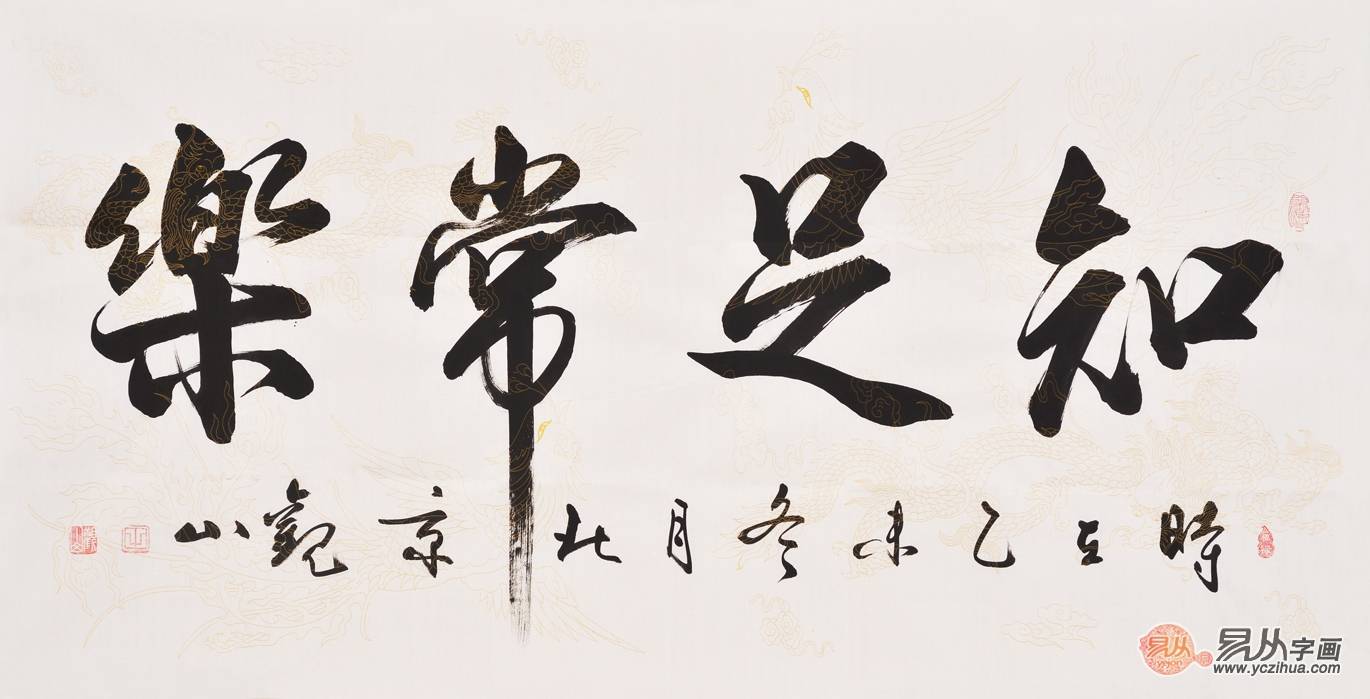 知足常樂
時在乙未冬月北京觀山
易从字画
www.yczihua.com